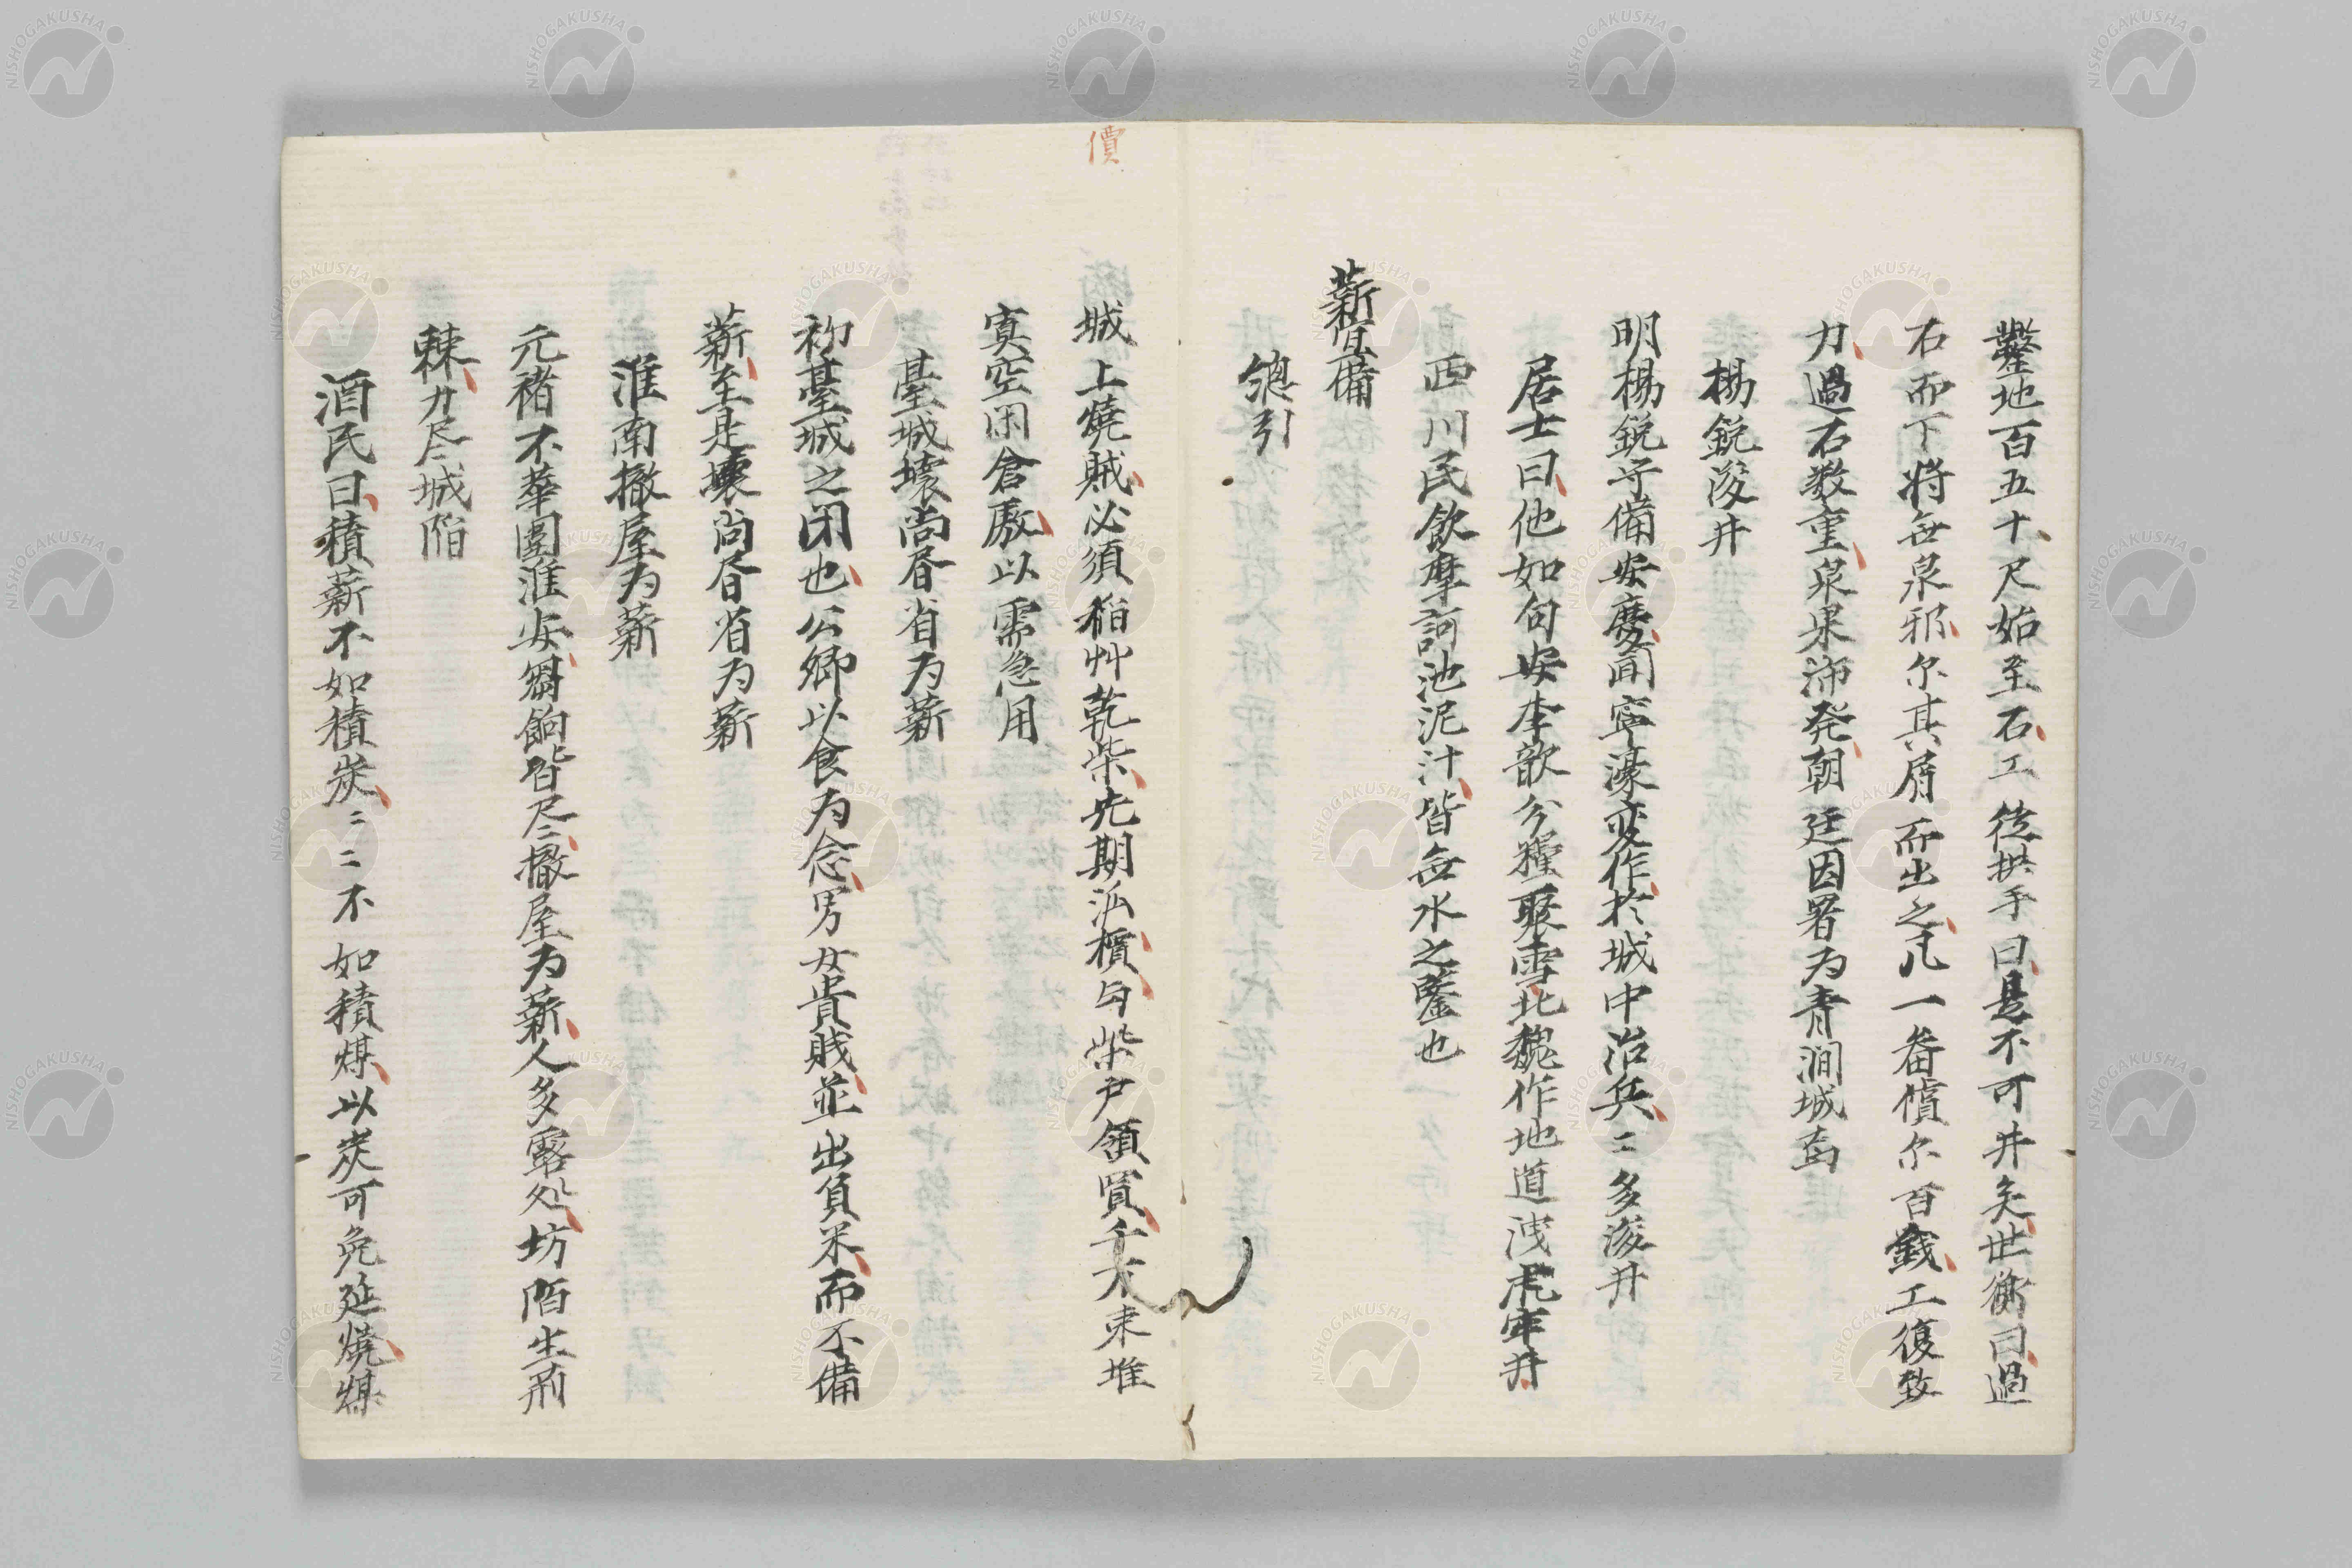 鑿地百五十尺始至石工徒拱手曰是不可井矣世衡曰過
石而下将無泉邪尔其屑而出之凡一畚償尔百錢工復致
力過石数重泉果沛発朝廷因署为青澗城焉
楊鋭浚井
明楊鋭守備安慶聞寧濠変作於城中治兵〻多浚井
居士曰他如句安李歆分糧聚雪北魏作地道洩虎牢井
西川民飲摩訶池泥汁皆無水之鑒也
薪蒭備
總引
價
城上燒賊必須稲艸乾柴先期泒櫝勾柴戸領買千大束堆
寘空闲倉厫以需急用
臺城壊尚昬省为薪
初臺城之闭也公卿以食为念男女貴賎並出負米而不備
薪至是壊尚昬省为薪
淮南撤屋为薪
元褚不華圍淮安芻餉皆尽撤屋为薪人多露处坊陌生荊
棘力尽城陥
酒民曰積薪不如積炭〻〻不如積煤以炭可免延燒煤